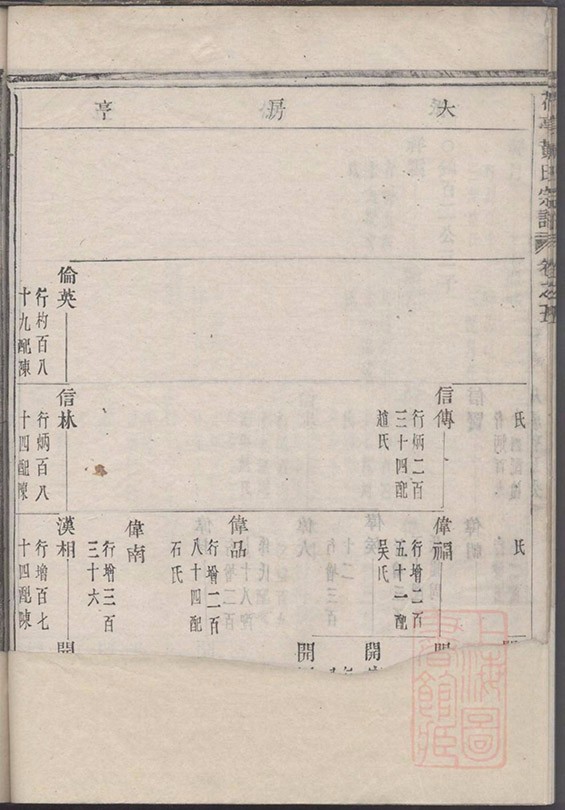 大房
氏
信傳
行炳二百
三十四配
趙氏
倫英
行杓百八
十九配陳
信林
行炳百八
十四配陳
氏
偉福
行增二百
五十一配
吳氏
偉品
行增二百
八十四配
石氏
偉南
行增三百
三十六
漢相
行增百七
十四配陳
開
開
開
上海圖
書館藏